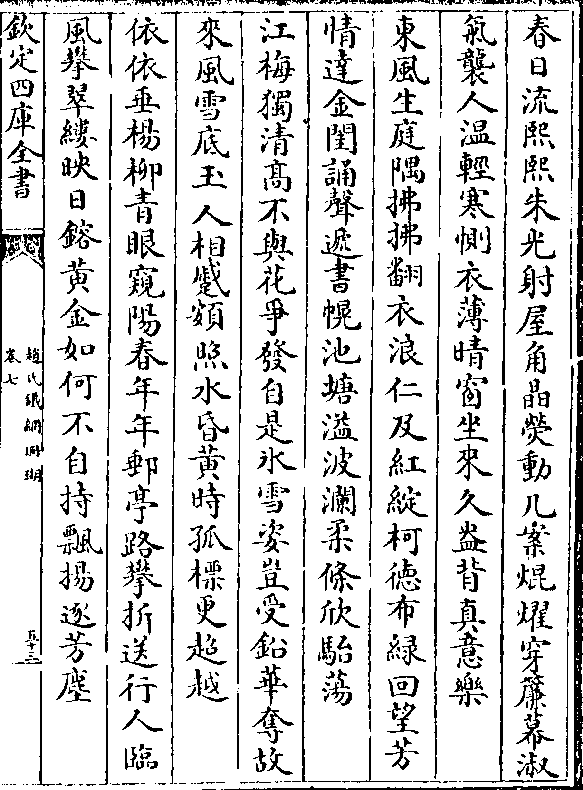 春日流熙熙朱光射屋角晶熒動几案焜燿穿簾幕淑
氣襲人温輕寒惻衣薄晴窗坐來久盎背真意樂
東風生庭隅拂拂翻衣浪仁及紅綻柯德布緑回望芳
情達金閨誦聲遞書幌池塘溢波瀾柔條欣駘蕩
江梅獨清髙不與花爭發自是氷雪姿豈受鉛華奪故
來風雪底玉人相蹙頞照水昏黄時孤標更超越
依依垂楊柳青眼窺陽春年年郵亭路攀折送行人臨
風攀翠縷映日鎔黄金如何不自持飄揚逐芳塵
欽定四庫全書
趙氏鐵網珊瑚
卷七
五十三